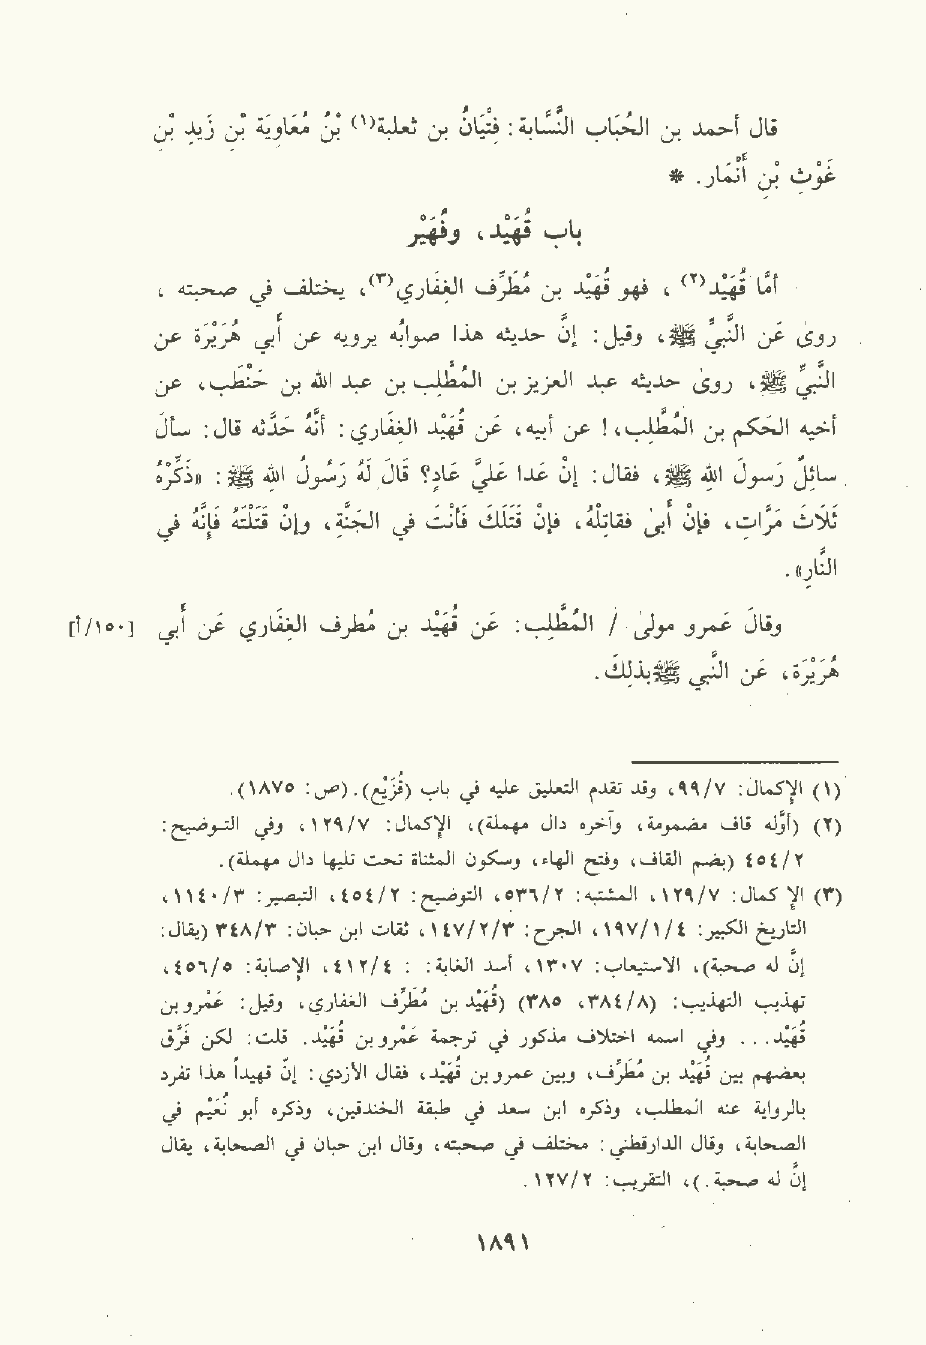 قال أحمد بن الحُبَاب النَّسَّابة: فِتيَانُ بن ثعلبة(١) بْنُ مُعَاوِيَة بْنِ زَيدِ بْنِ
غَوْثِ بْنِ أَنْمَار. *
باب قُهَيْد، وفُهَيْر
أمَّا قُهَيْد(٢) ، فهو قُهَيْد بن مُطَرِّف الغفَاري(٣)، يختلف في صحبته ،
روى عَن النَّبيِّ ﷺ، وقيل: إنَّ حديثه هذا صوابُه يرويه عن أَبي هُرَيْرَة عن
النَّبيِّ ﷺ، روى حديثه عبد العزيز بن المُطَّلب بن عبد الله بن حَنْطَب، عن
أخيه الحَكم بن المُطَّلب،! عن أبيه، عَن قُهَيْد الغفَاري: أنَّهُ حَدَّثه قال: سألَ
سائِلٌ رَسولَ الله ﷺ، فقال: إنْ عَدا عَليَّ عَادٍ؟ قَالَ لَهُ رَسُولُ الله ﷺ: «ذَكِّرْهُ
ثَلَاثَ مَرَّاتٍ، فإنْ أَبىٰ فقاتِلْهُ، فإنْ قَتَلَكَ فَأنْتَ في الجَنَّةِ، وإنْ قَتَلْتَهُ فَإِنَّهُ في
النَّارِ».
وقالَ عَمرو مولىٰ / المُطَّلِب: عَن قُهَيْد بن مُطرف الغفَاري عَن أَبي [١٥٠/أ]
هُرَيْرَة، عَن النَّبي ﷺبذلِكَ.
(١) الإكمال: ٩٩/٧، وقد تقدم التعليق عليه في باب (قُزَيْع).(ص: ١٨٧٥).
(٢) (أوَّله قاف مضمومة، وآخره دال مهملة)، الإكمال: ١٢٩/٧، وفي التـوضيح:
٤٥٤/٢ (بضم القاف، وفتح الهاء، وسكون المثناة تحت تليها دال مهملة).
(٣) الإ كمال: ١٢٩/٧، المشتبه: ٥٣٦/٢، التوضيح: ٤٥٤/٢، التبصير: ١١٤٠/٣،
التاريخ الكبير: ١٩٧/١/٤، الجرح: ١٤٧/٢/٣، ثقات ابن حبان: ٣٤٨/٣ (يقال:
إنَّ له صحبة)، الاستيعاب: ١٣٠٧، أسد الغابة: : ٤١٢/٤، الإصابة: ٤٥٦/٥،
تهذيب التهذيب: (٣٨٤/٨، ٣٨٥) (قُهَيْد بن مُطَرِّف الغفاري، وقيل: عَمْروبن
قُهَيْد... وفي اسمه اختلاف مذكور في ترجمة عَمْروبن قُهَيْد. قلت: لكن فَرَّق
بعضهم بين قُهَيْد بن مُطَرِّف، وبين عمروبن قُهَيْد، فقال الأزدي: إنَّ قهيداً هذا تفرد
بالرواية عنه المطلب، وذكره ابن سعد في طبقة الخندقين، وذكره أبو نُعَيْم في
الصحابة، وقال الدارقطني: مختلف في صحبته، وقال ابن حبان في الصحابة، يقال
إنَّ له صحبة.)، التقريب: ١٢٧/٢.
١٨٩١